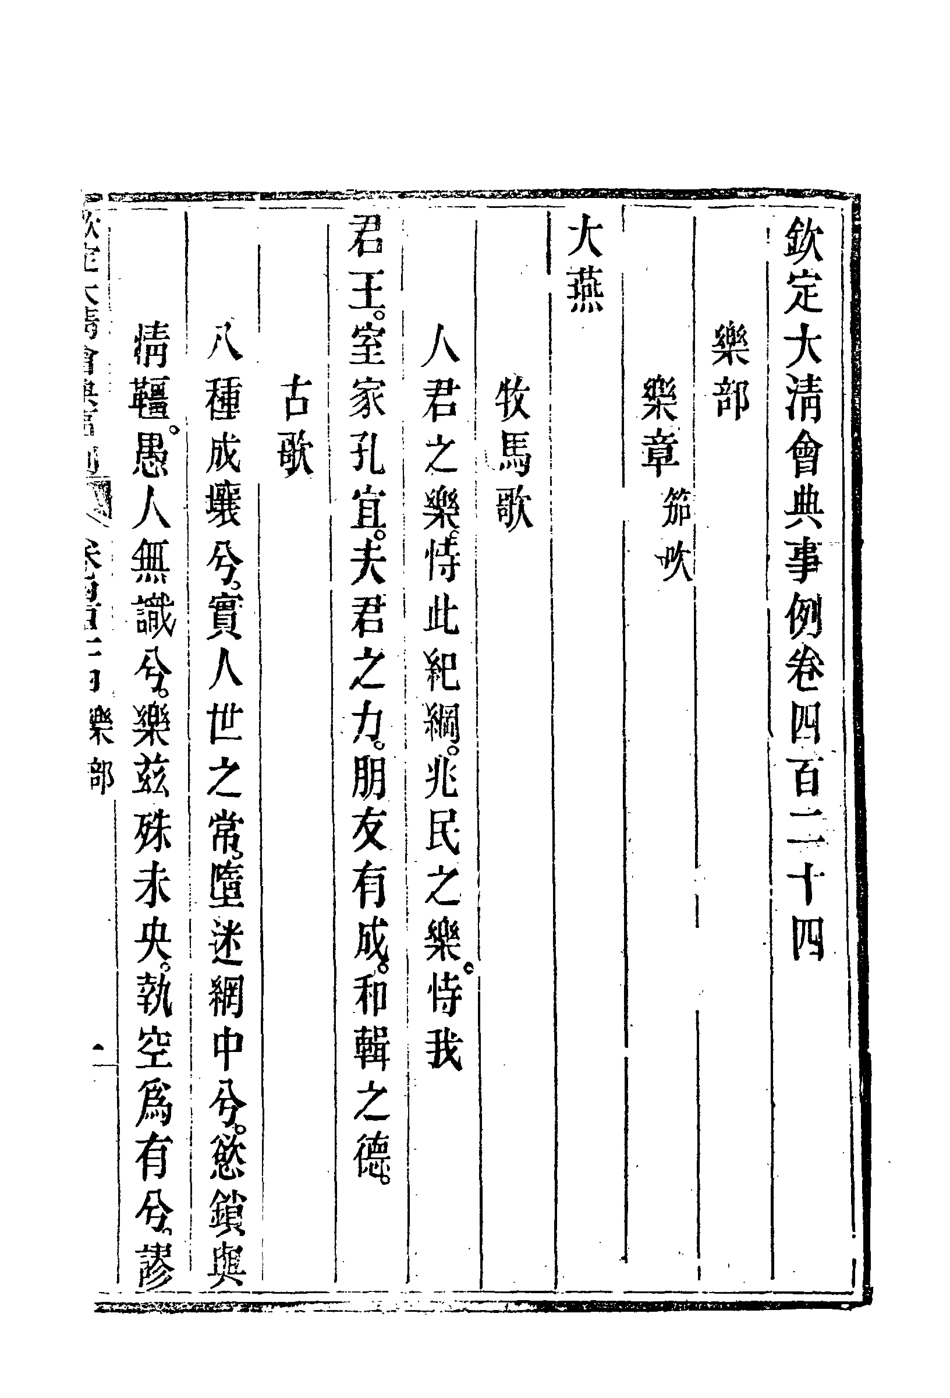 欽定大清會典事例卷四百二十四
樂部
樂章 笳吹
大燕
牧馬歌
人君之樂。恃此紀綱。兆民之樂。恃我
君王。室家孔宜。夫君之力。朋友有成。和輯之德。
古歌
八種成壤兮。實人世之常。墮迷網中兮。慾鎖與
情韁。愚人無識兮。樂茲殊未央。執空爲有兮。謬
欽定大清會典事例 卷四百二十四 樂部 一